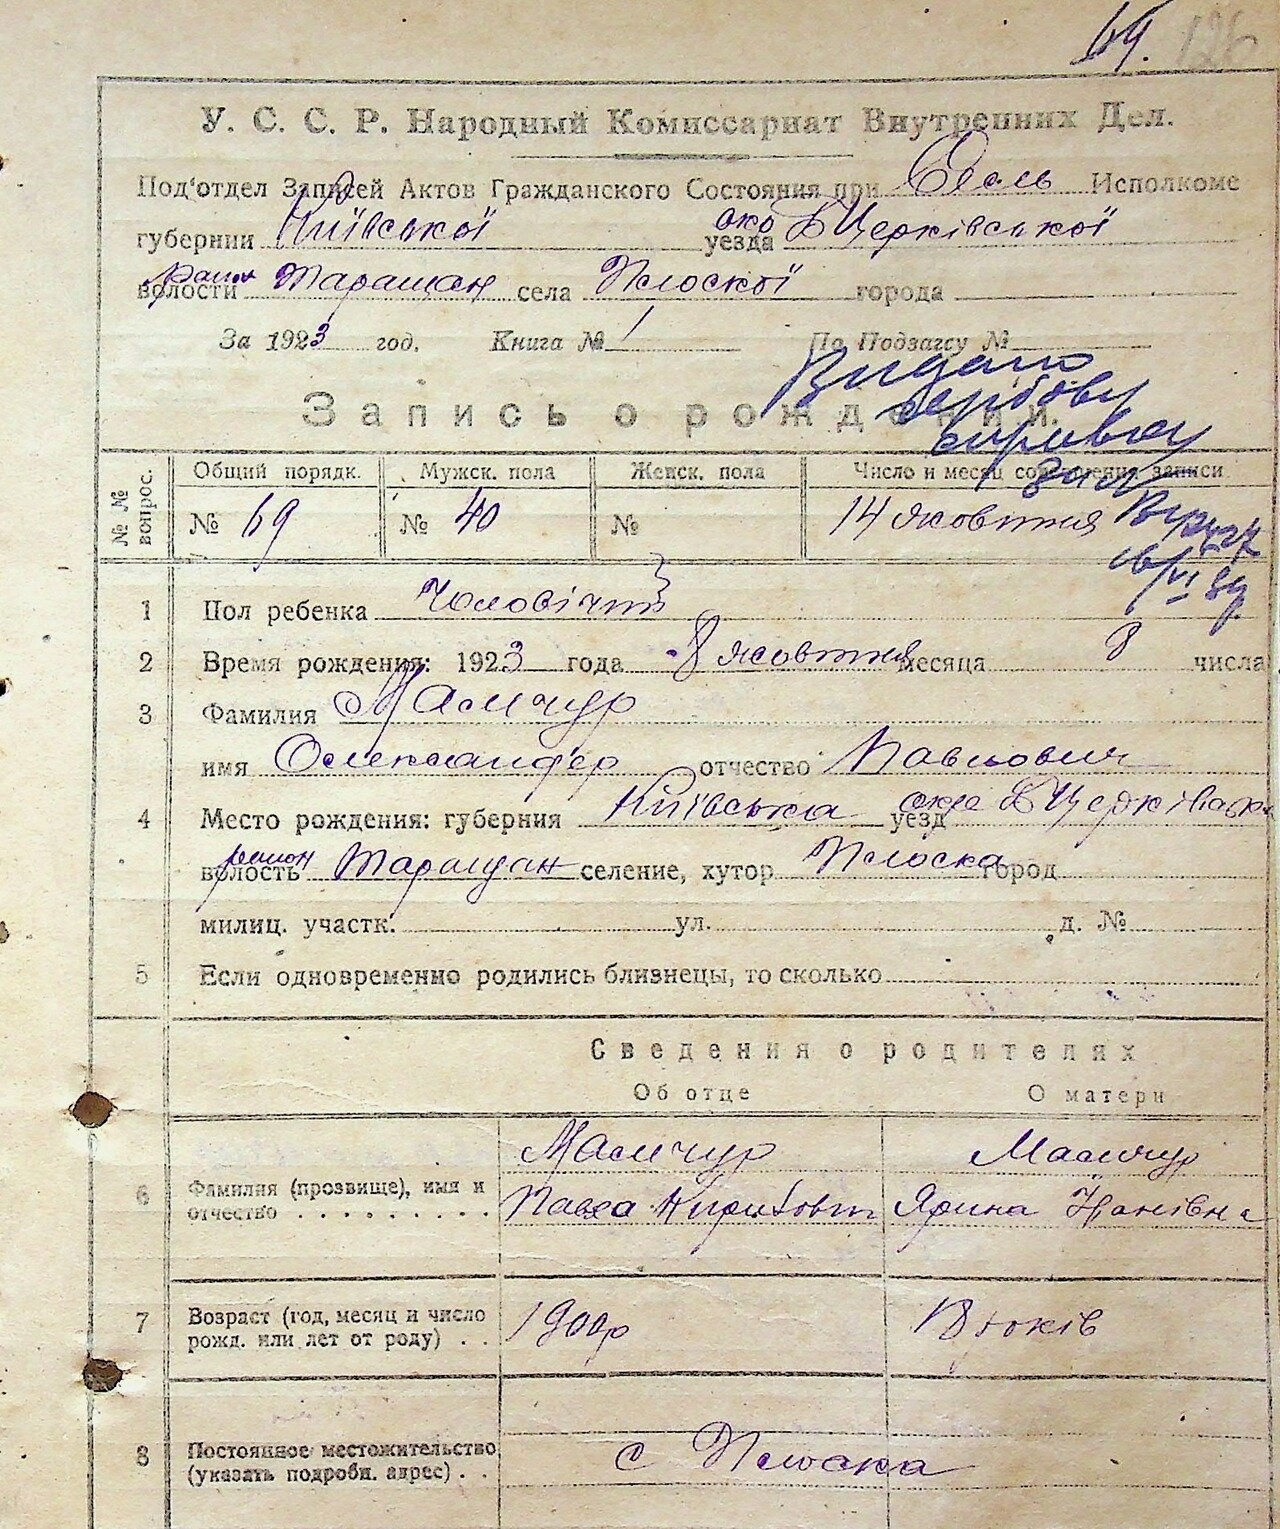 69. 126
У. С. С. Р. Народный Комиссариат Внутренних Дел.
Под'отдел Записей Актов Гражданского Состояния при Сель Исполкоме
губернии Київської окр уезда Б Церківської
район волости Таращан села Плоскої города
За 1923 год. Книга № 1 По Подзагсу №
Видано
Запись о рождении.
№ № вопрос. Общий порядк. Мужск. пола Женск. пола Число и месяц совершения записи
№ 69 № 40 № 14 жовтня
1 Пол ребенка Чоловіч
2 Время рождения: 1923 года 8 жовтня месяца 8 числа
3 Фамилия Мамчур
имя Олександер отчество Павлович
4 Место рождения: губерния Київська уезд Б Церківська
район волость Таращан селение, хутор Плоска город
милиц. участк. ул. д. №
5 Если одновременно родились близнецы, то сколько
Сведения о родителях
Об отце О матери
Мамчур Мамчур
6 Фамилия (прозвище), имя и отчество Павло Ярина Іванівна
7 Возраст (год, месяц и число рожд. или лет от роду) 1900р років
8 Постоянное местожительство (указать подробн. адрес) с Плоска